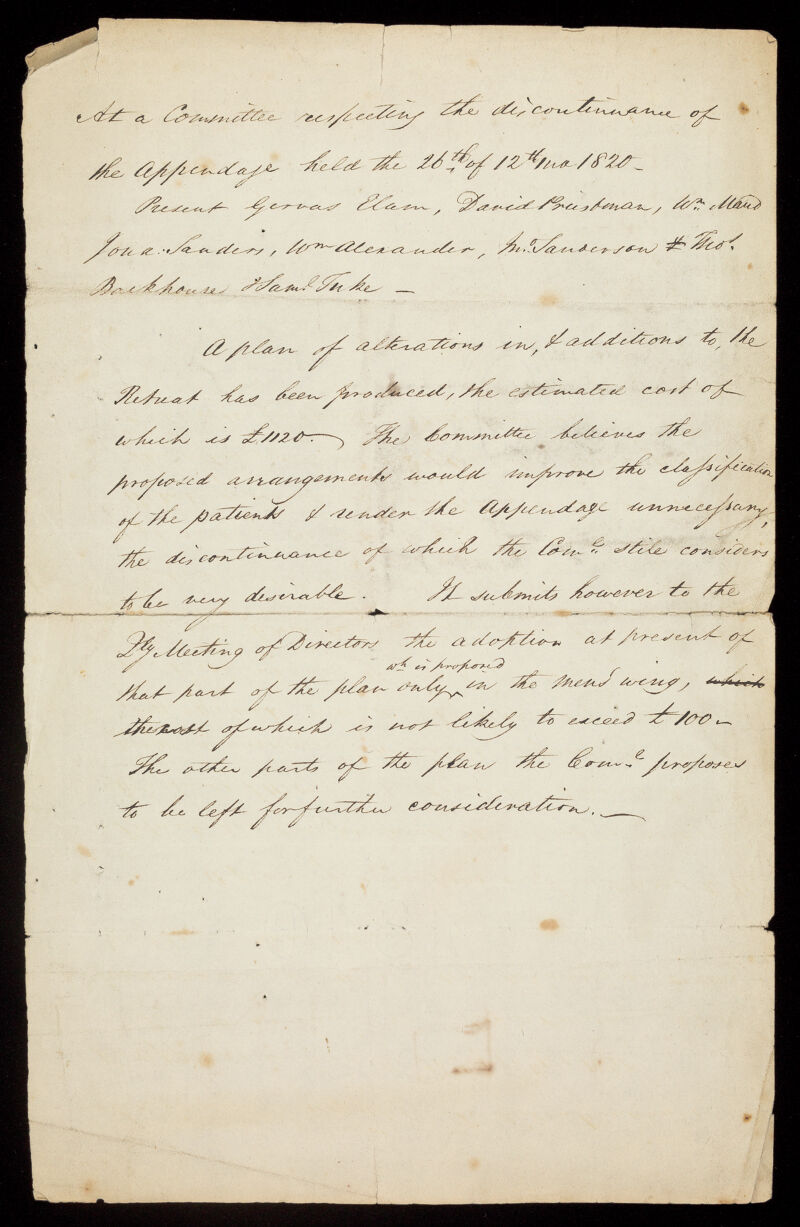 At a Committee respecting the discontinuance of
the Appendage held the 26th of 12th mo 1820 -
Present Gervas Elam, David Priestman, Wm Maud
Jona: Sanders, Wm Alexander, Jno. Sanderson & Thos.
Backhouse & Saml. Tuke —
A plan of alterations in, & additions to, the
Retreat has been produced, the estimated cost of
which is £1120. — The Committee believes the
proposed arrangements would improve the classification
of the patients & render the Appendage unnecessary,
the discontinuance of which the Come. stile considers
to be very desirable. It submits however to the
Qly Meeting of Directors the adoption at present of
wh. is proposed
that part of the plan only in the mens' wing, which
the cost of which is not likely to exceed £100 -
The other parts of the plan the Come. proposes
to be left for further consideration. —